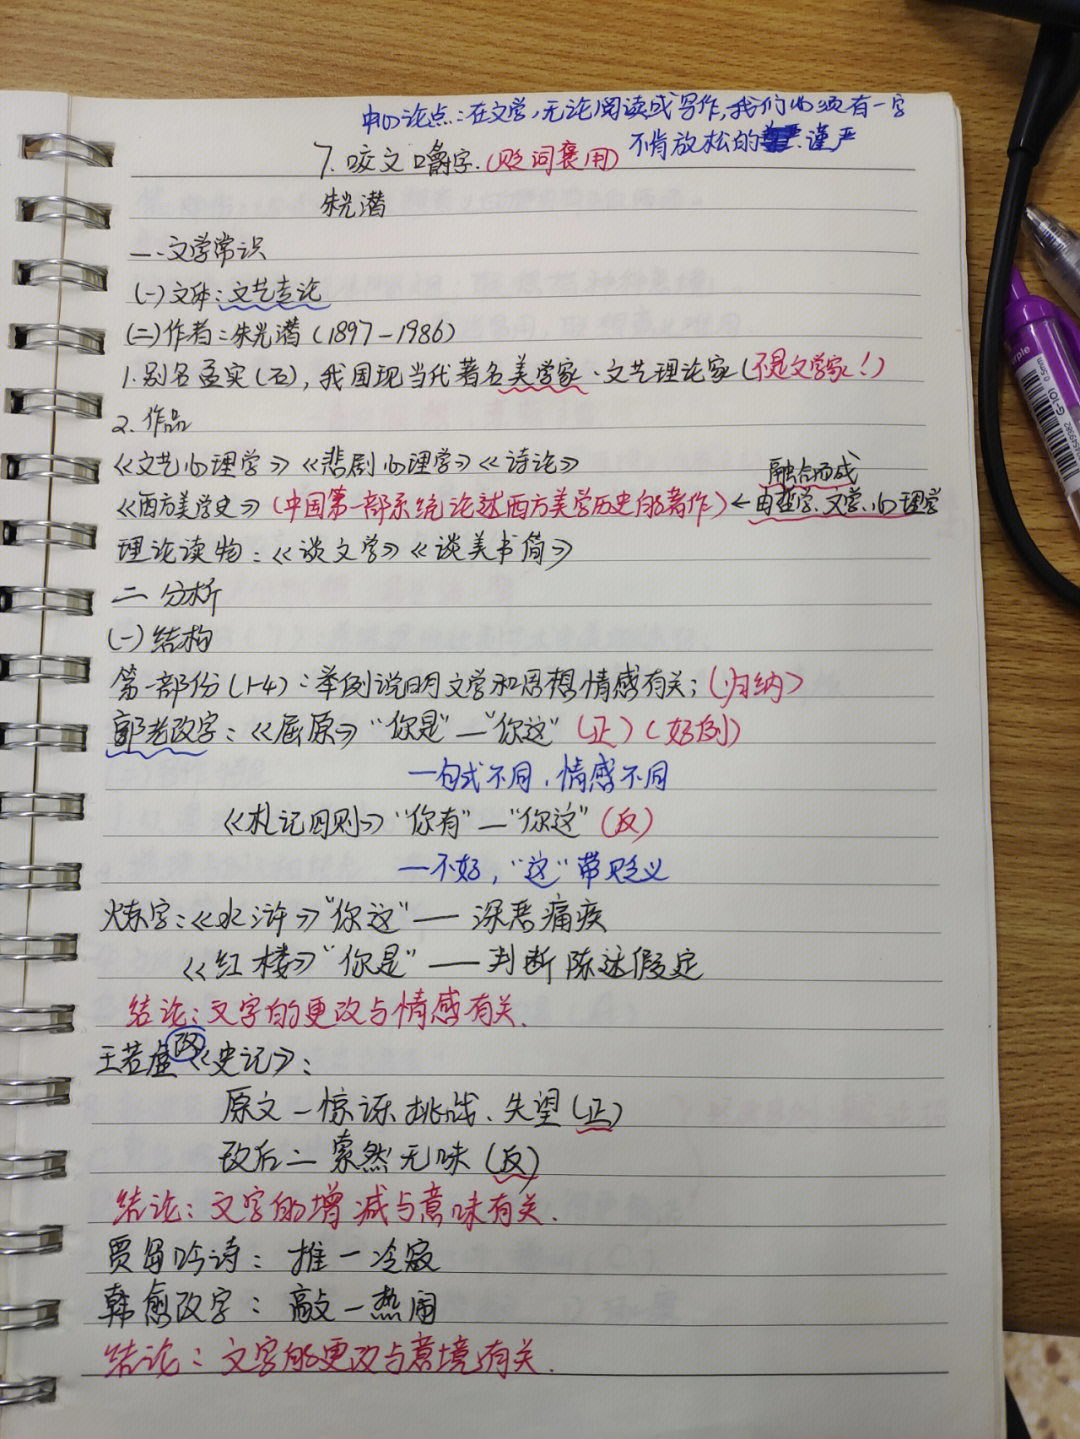 中心论点:在文学,无论阅读或写作,我们必须有一字
不肯放松的谨严
7.咬文嚼字.(贬词褒用)
朱光潜
一.文学常识
(一)文体:文艺专论
(二)作者:朱光潜(1897-1986)
1.别名孟实(石),我国现当代著名美学家.文艺理论家(不是文学家!)
2.作品
《文艺心理学》《悲剧心理学》《诗论》
融合而成
《西方美学史》(中国第一部系统论述西方美学历史的著作)←由哲学、文学、心理学
理论读物:《谈文学》《谈美书简》
二 分析
(一)结构
第一部份(1-4):举例说明文学和思想情感有关;(归纳)
郭老改字:《屈原》“你是”—“你这”(正)(好例)
—句式不同,情感不同
《札记四则》“你有”—“你这”(反)
—不好,“这”带贬义
炼字:《水浒》“你这”—深恶痛疾
《红楼》“你是”—判断陈述假定
结论:文字的更改与情感有关.
王若虚改《史记》:
原文—惊讶、挑战、失望(正)
改后二 索然无味(反)
结论:文字的增减与意味有关.
贾岛吟诗:推—冷寂
韩愈改字:敲—热闹
结论:文字的更改与意境有关.
purple
G-101
0.5mm